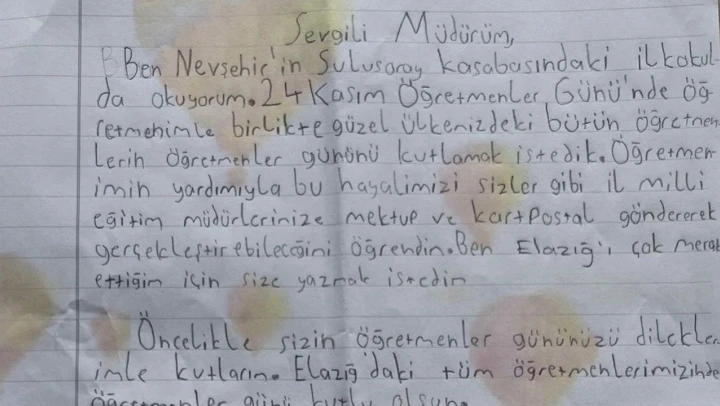 Sevgili Müdürüm,
Ben Nevşehir'in Sulusaray kasabasındaki ilkokul-
da okuyorum. 24 Kasım Öğretmenler Günü'nde öğ-
retmenimle birlikte güzel ülkemizdeki bütün öğretmen
lerin öğretmenler gününü kutlamak istedik. Öğretmen
imin yardımıyla bu hayalimizi sizler gibi il milli
eğitim müdürlerinize mektup ve kartpostal göndererek
gerçekleştirebileceğini öğrendim. Ben Elazığ'ı çok merak
ettiğim için size yazmak istedim
Öncelikle sizin öğretmenler gününüzü dilekler
imle kutlarım. Elazığ'daki tüm öğretmenlerimizinde
öğretmenler günü kutlu olsun.